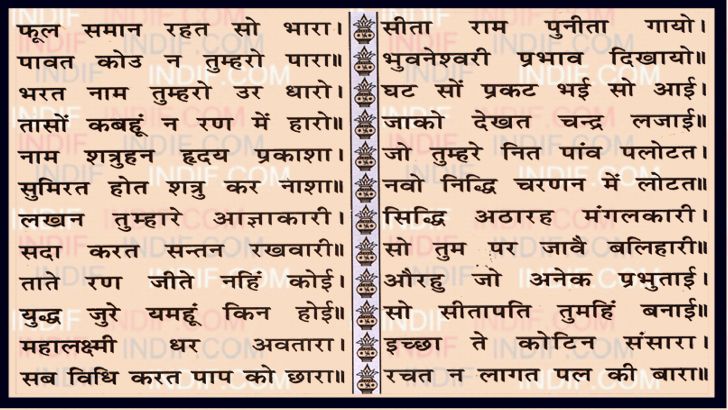 फूल समान रहत सो भारा।
पावत कोउ न तुम्हरो पारा॥
भरत नाम तुम्हरो उर धारो।
तासों कबहूं न रण में हारो॥
नाम शत्रुहन हृदय प्रकाशा।
सुमिरत होत शत्रु कर नाशा॥
लखन तुम्हारे आज्ञाकारी।
सदा करत सन्तन रखवारी॥
ताते रण जीते नहिं कोई।
युद्ध जुरे यमहूं किन होई॥
महालक्ष्मी धर अवतारा।
सब विधि करत पाप को छारा॥
सीता राम पुनीता गायो।
भुवनेश्वरी प्रभाव दिखायो॥
घट सों प्रकट भई सो आई।
जाको देखत चन्द्र लजाई॥
जो तुम्हरे नित पांव पलोटत।
नवो निद्धि चरणन में लोटत॥
सिद्धि अठारह मंगलकारी।
सो तुम पर जावै बलिहारी॥
औरहु जो अनेक प्रभुताई।
सो सीतापति तुमहिं बनाई॥
इच्छा ते कोटिन संसारा।
रचत न लागत पल की बारा॥
INDIF.COM